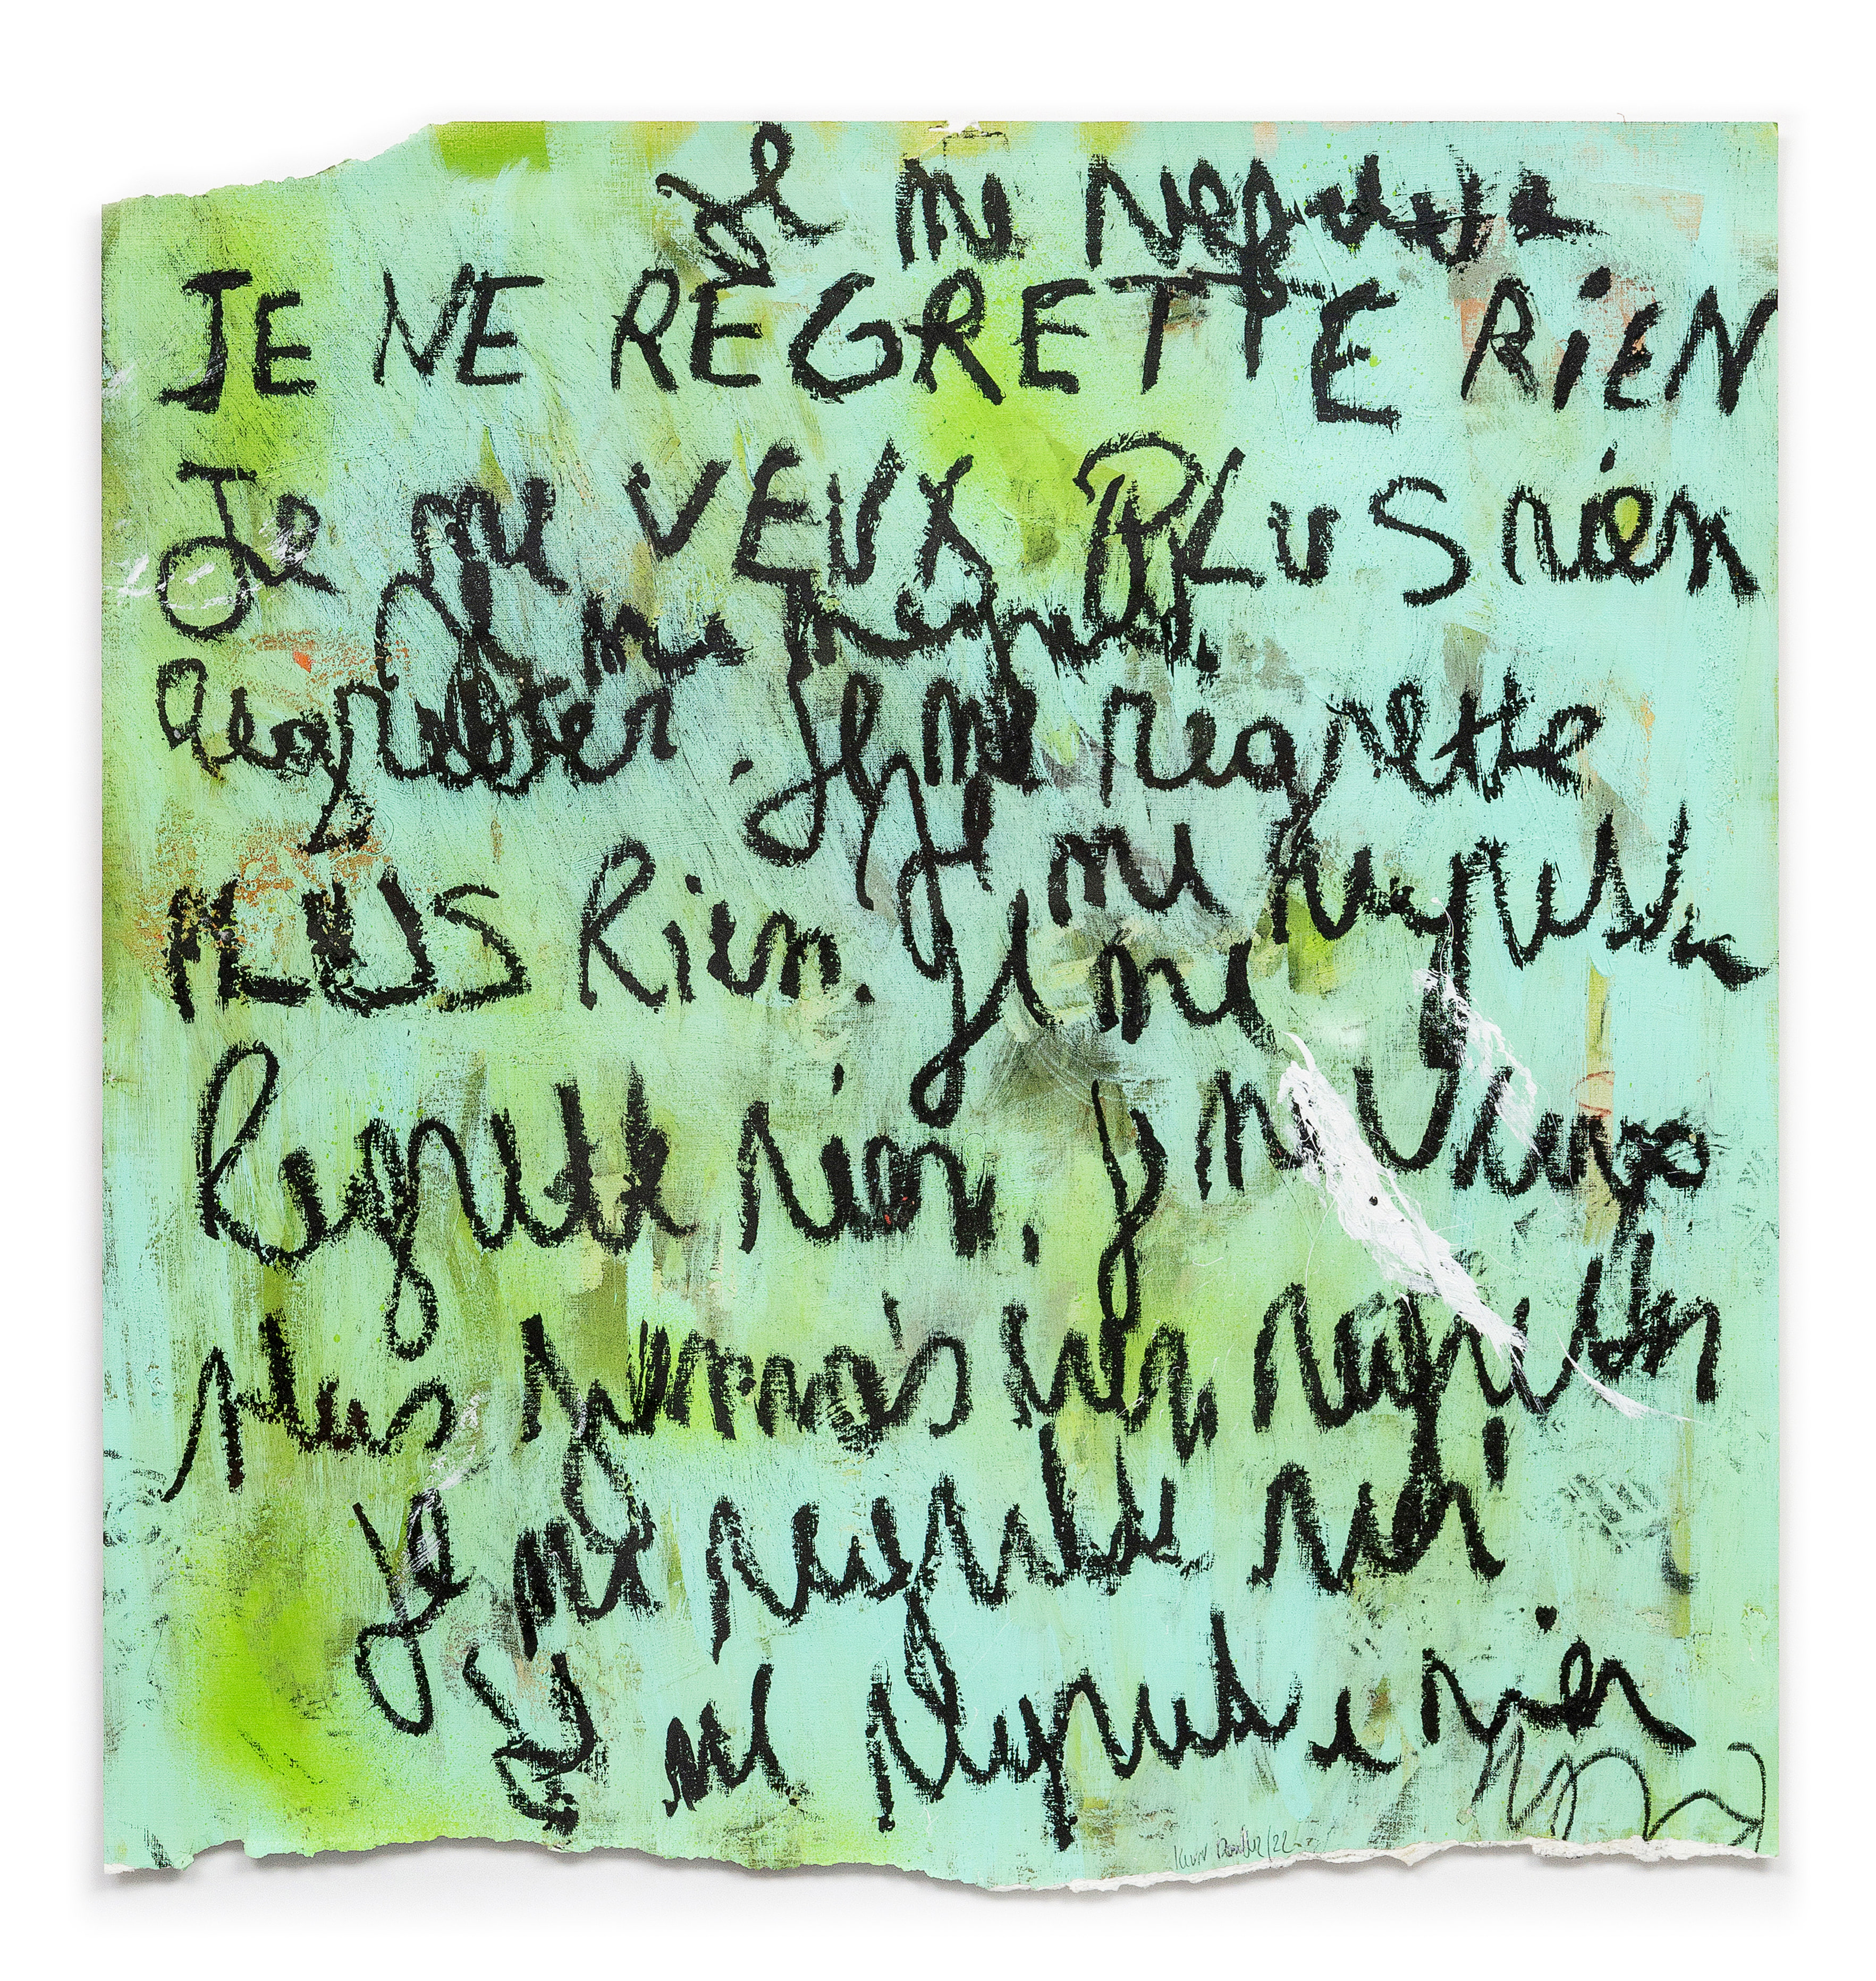 Je ne regrette
JE NE REGRETTE RiEN
Je ne VEUX PLUS rien
Je ne regrette
Regretter. Je ne regrette
PLUS Rien. Je ne regrette
Je ne
Regrette rien. Je ne
plus jamais rien regretter
Je ne regrette rien
Je ne regrette rien
/22